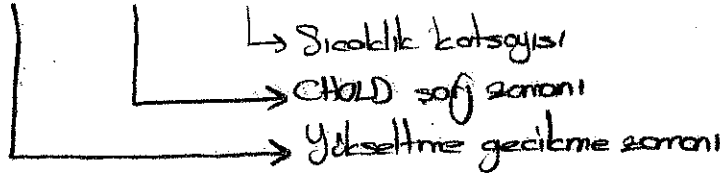 Sıcaklık katsayısı
CHOLD şarj zamanı
Yükseltme gecikme zamanı